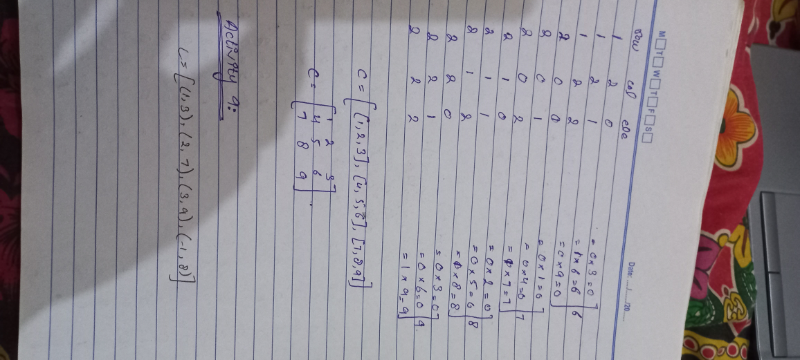 M T W T F S Date ../../20...
row col ele
1 2 0 = 0×3=0
1 2 1 = 1×6=6 6
1 2 2 = 0×9=0
2 0 0 = 0×1=0
2 0 1 = 0×4=0 7
2 0 2 = 1×7=7
2 1 0 = 0×2=0
2 1 1 = 0×5=0 8
2 1 2 = 1×8=8
2 2 0 = 0×3=0
2 2 1 = 0×6=0 9
2 2 2 = 1×9=9
C = [[1,2,3], [4,5,6], [7,8,9]]
1 2 3
C = 4 5 6
7 8 9
Activity 9:
L = [(1,3), (2,7), (3,9), (-1,8)]